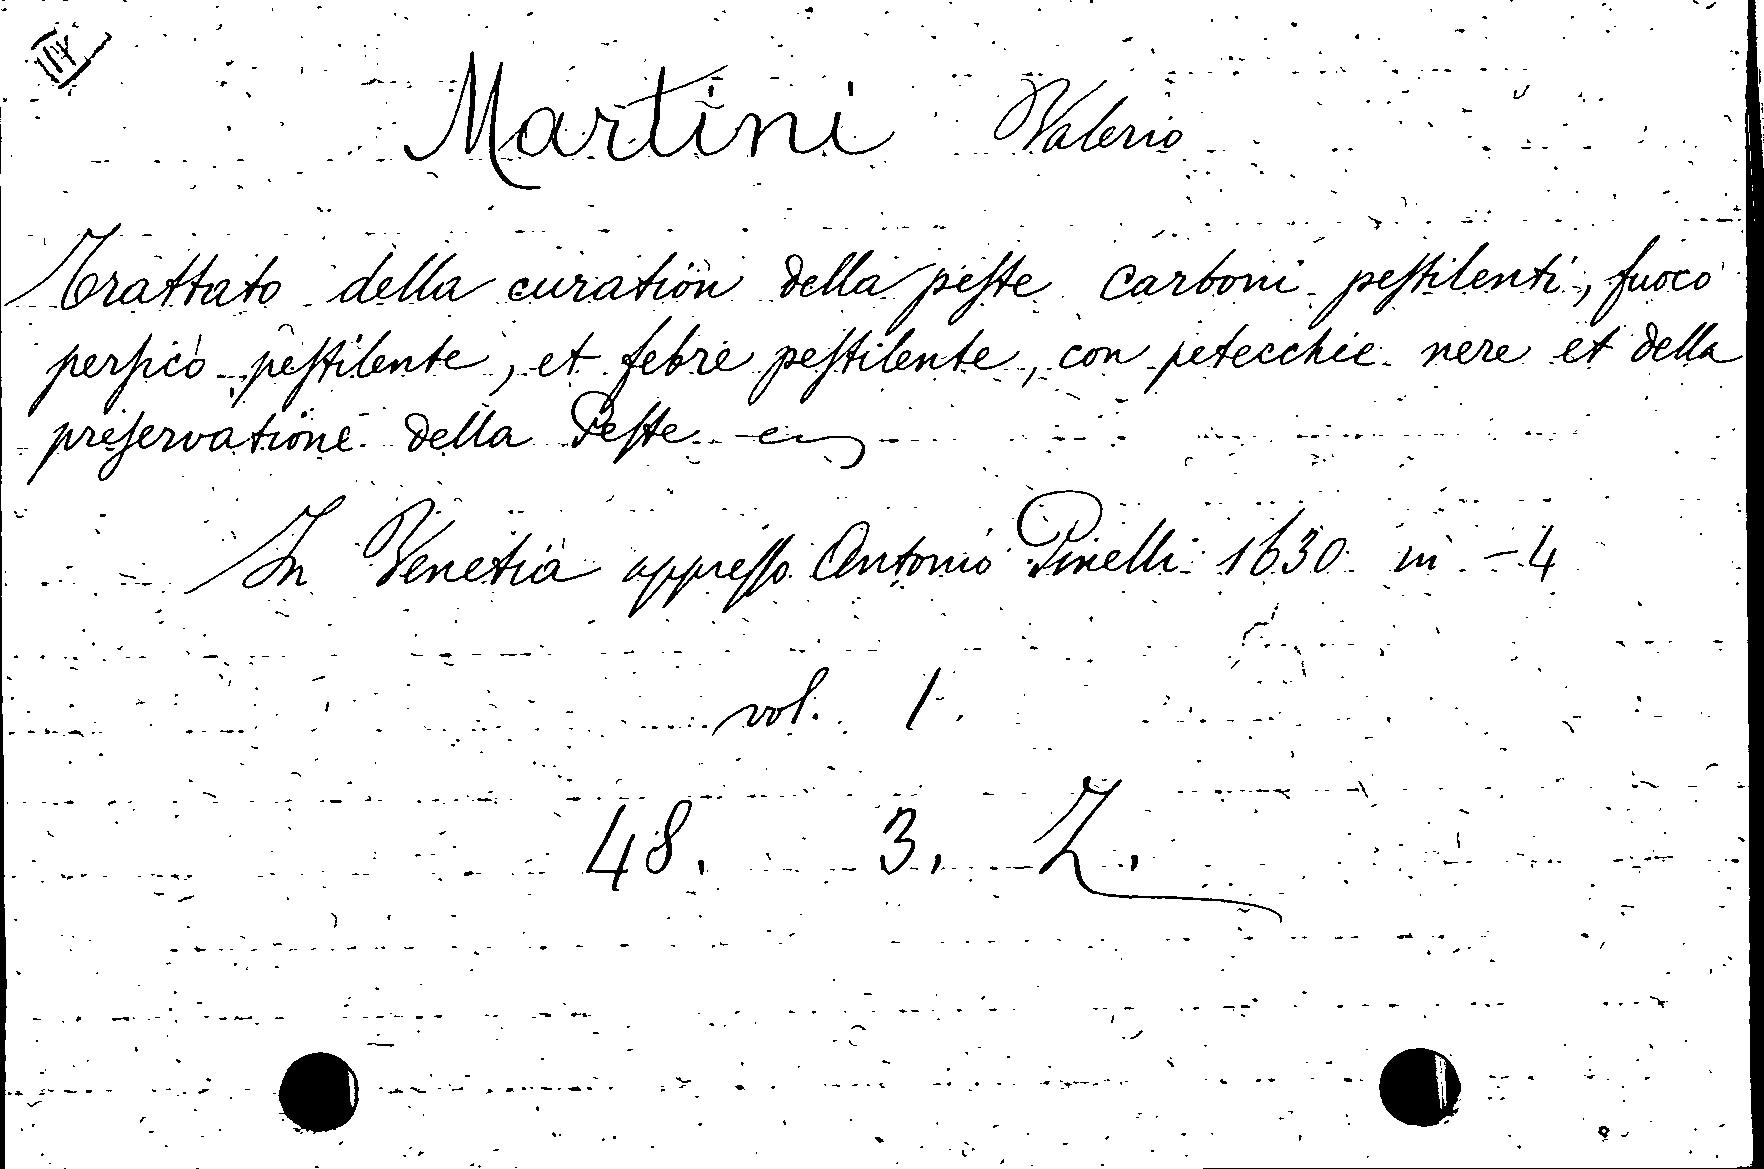 Martini Valerio
Trattato della curation della peste carboni pestilenti, fuoco
persico pestilente, et febre pestilente, con petecchie nere et della
preservatione della Peste
In Venetia appresso Antonio Pinelli 1630 in - 4
vol. 1.
48. 3. Z.